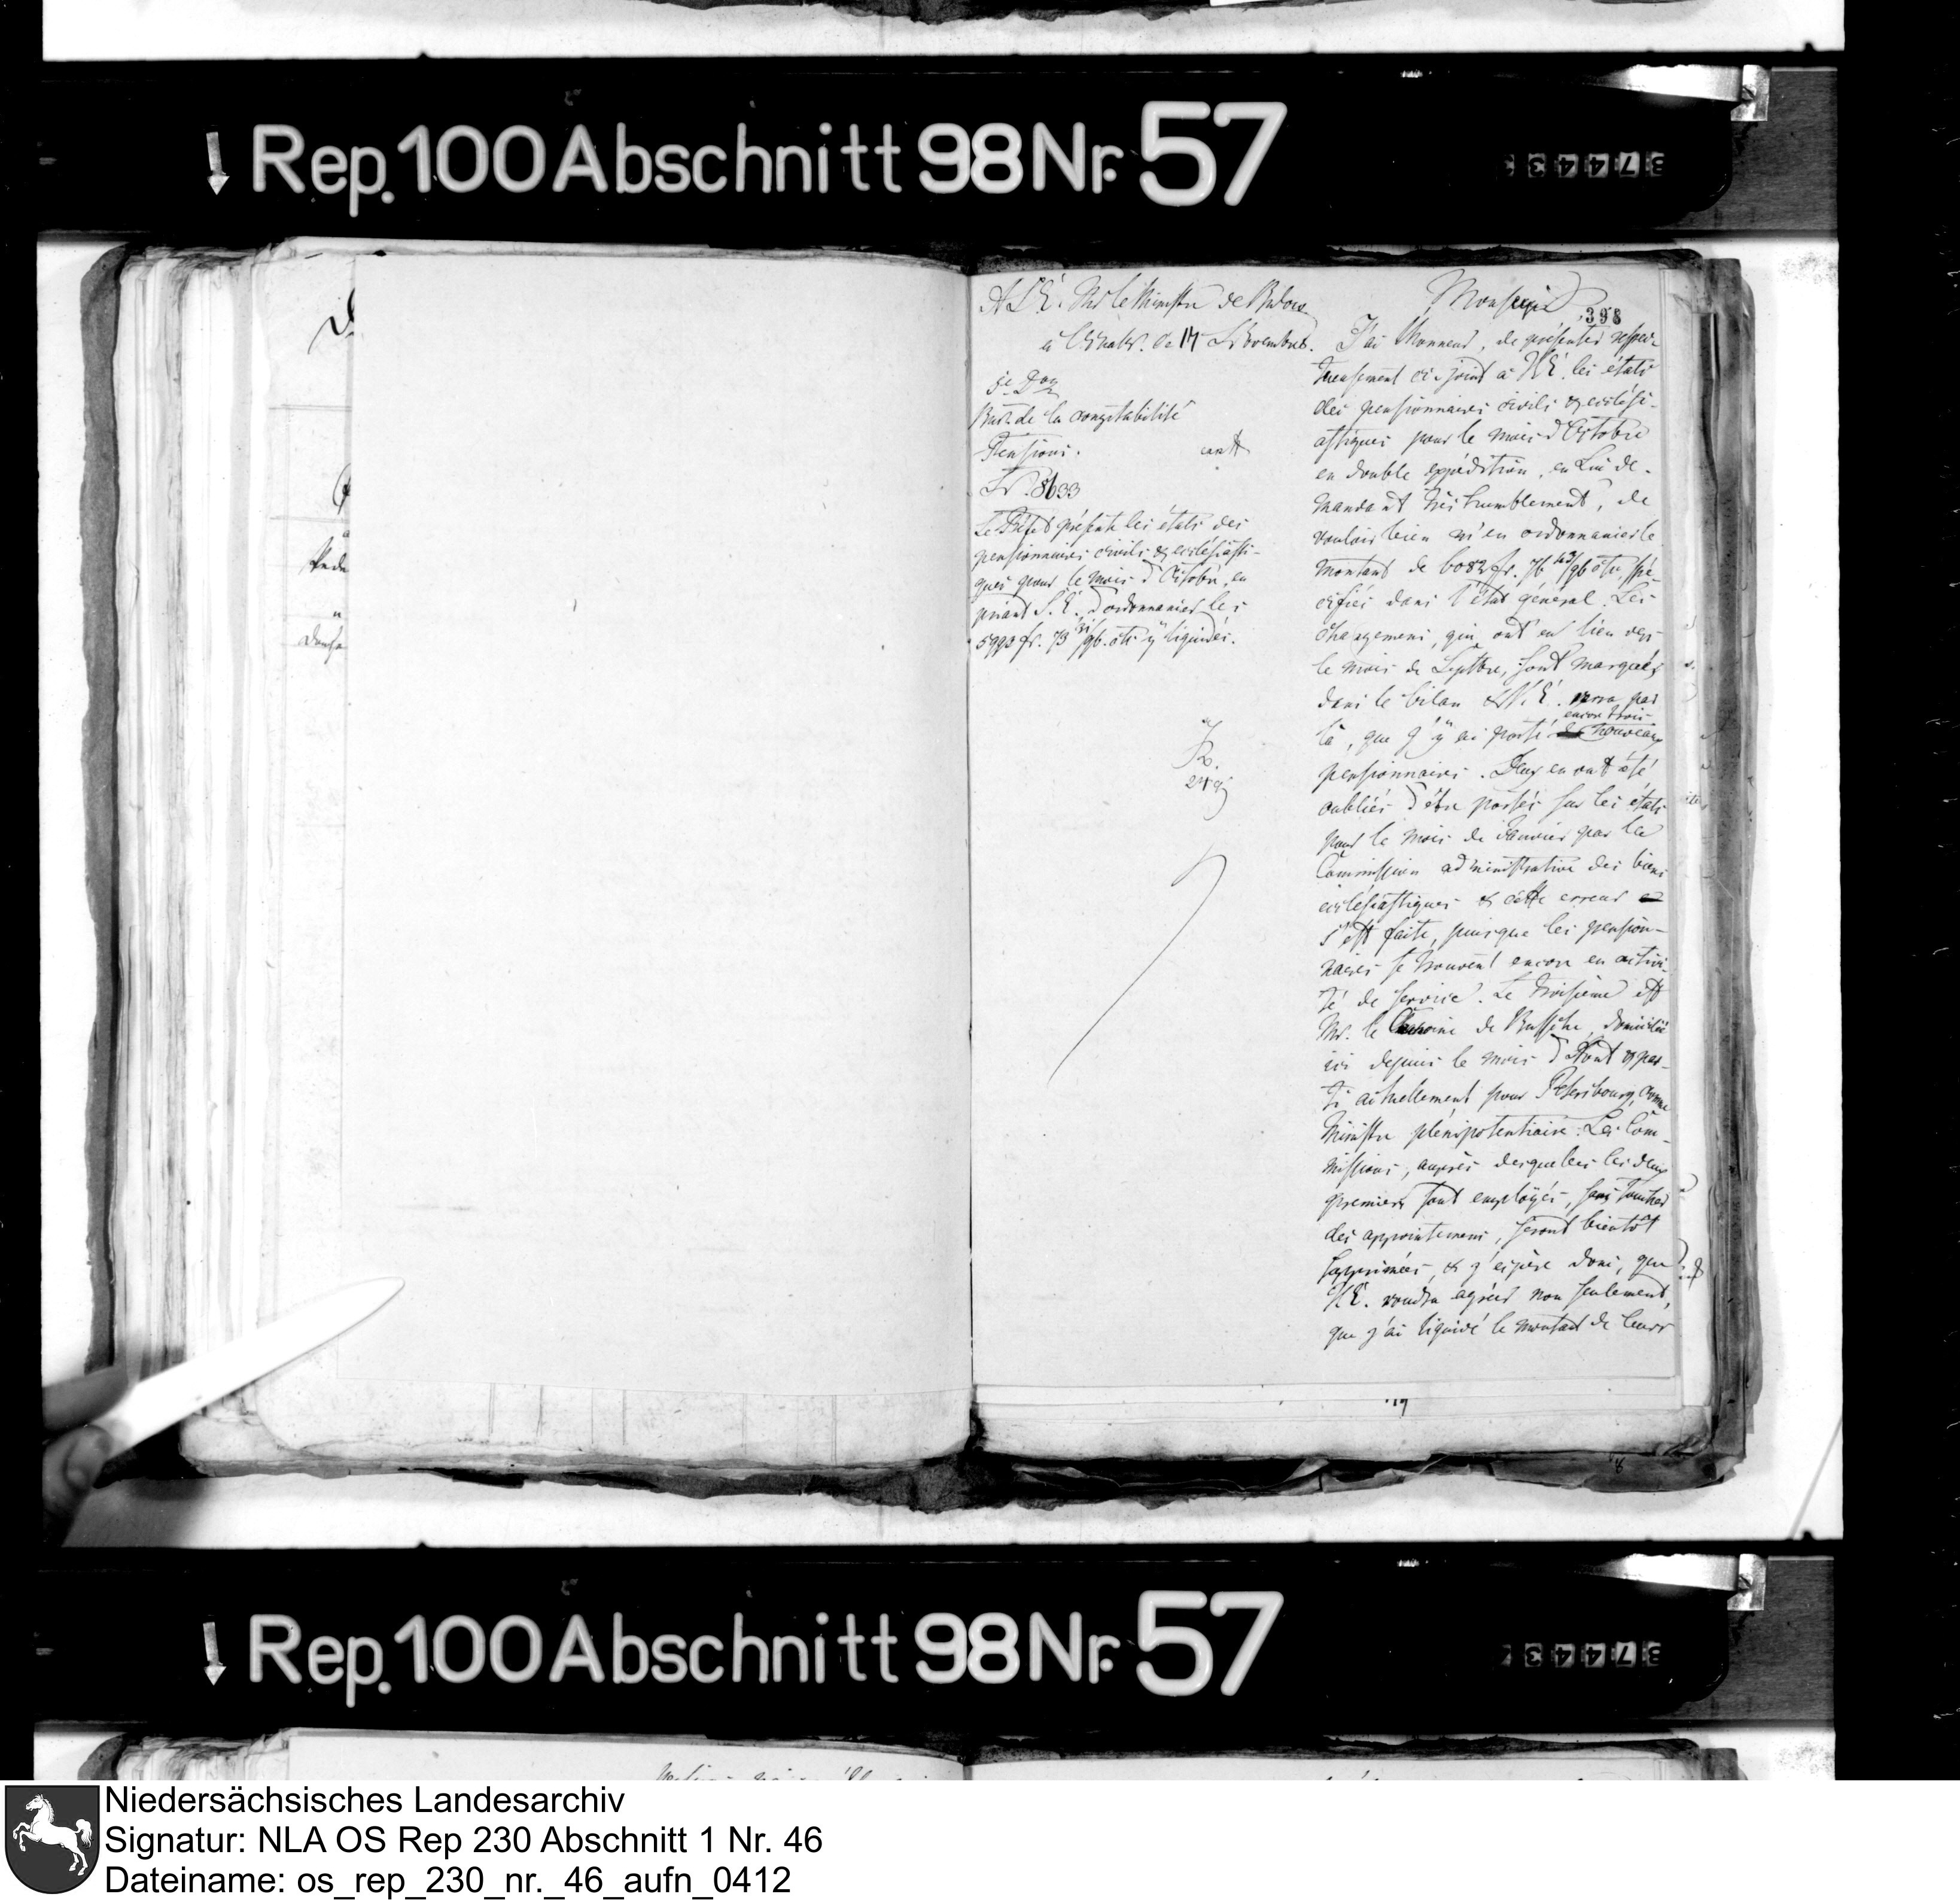 Rep. 100 Abschnitt 98 Nr. 57
37443
398
A S. E. Mr le Ministre de Bulow
à Osnabr. ce 14 Novembre.
Bur. de la comptabilité
Pensions.
Nr. 8633
Le Préfet présente les états des
pensionnaires civils & ecclésiasti-
ques pour le mois d'Octobre, en
priant S. E. d'ordonnancer les
5993 fr. 73 /96. cts y liquidés.
Monseign.
J'ai l'honneur, de présenter respec-
tueusement ci-joint à V. E. les états
des pensionnaires civils & ecclési-
astiques pour le mois d'Octobre
en double expédition, en Lui de-
mandant très humblement, de
vouloir bien m'en ordonnancer le
montant de 6082 fr. 76 43/96 cts, spé-
cifiés dans l'état général. Les
changemens, qui ont eu lieu dep.
le mois de Septbre, sont marqués
dans le bilan & V. E. verra par
là, que j'y ai porté encore trois nouveaux
pensionnaires. Deux en ont été
oubliés d'être portés sur les états
pour le mois de Janvier par la
Commission administrative des biens
ecclésiastiques & cette erreur
s'est faite, puisque les pension-
naires se trouvent encore en activi-
té de service. Le troisième est
Mr. le Chanoine de Bussche, domicilié
ici depuis le mois d'Août & par-
ti actuellement pour Petersbourg, comme
Ministre plénipotentiaire. Les Com-
missions, auprès desquelles les deux
premiers sont employés, sans toucher
des appointemens, seront bientôt
supprimées, & j'espère donc, que
V. E. voudra agréer non seulement,
que j'ai liquidé le montant de leurs
Rep. 100 Abschnitt 98 Nr. 57
37443
Niedersächsisches Landesarchiv
Signatur: NLA OS Rep 230 Abschnitt 1 Nr. 46
Dateiname: os_rep_230_nr._46_aufn_0412